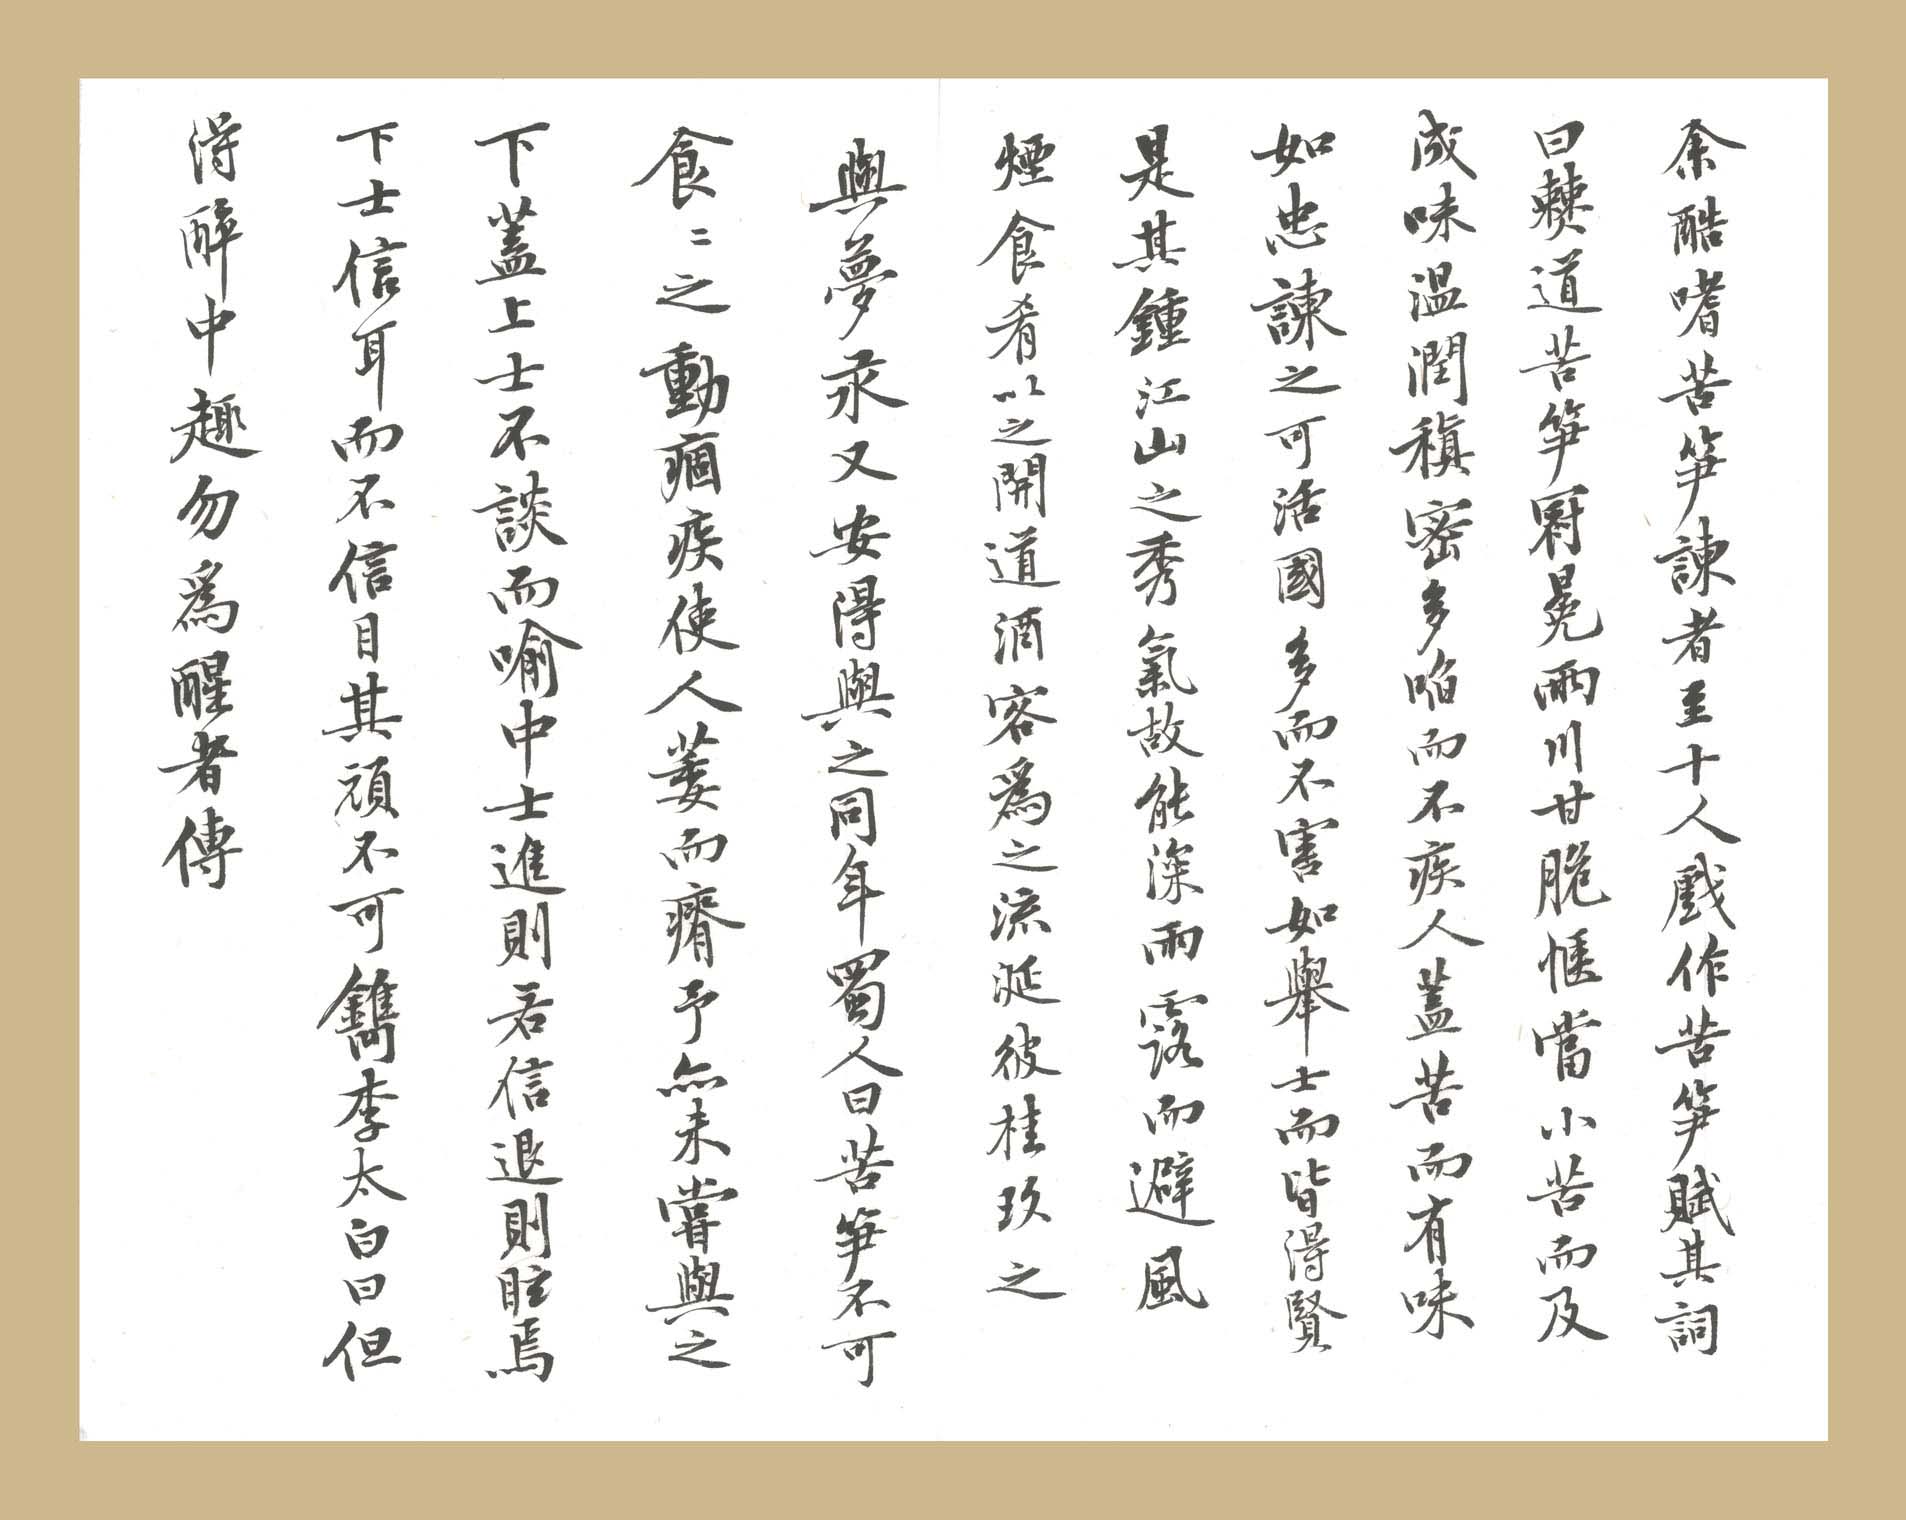 余酷嗜苦笋諫者至十人戲作苦笋賦其詞
曰僰道苦笋冠冕兩川甘脆愜當小苦而及
成味溫潤稹密多啗而不疾人蓋苦而有味
如忠諫之可活國多而不害如舉士而皆得賢
是其鍾江山之秀氣故能深雨露而避風
煙食肴以之開道酒客為之流涎彼桂玖之
與夢汞又安得與之同年蜀人曰苦笋不可
食〻之動痼疾使人萎而瘠予亦未嘗與之
下蓋上士不談而喻中士進則若信退則眩焉
下士信耳而不信目其頑不可鐫李太白曰但
得醉中趣勿為醒者傳